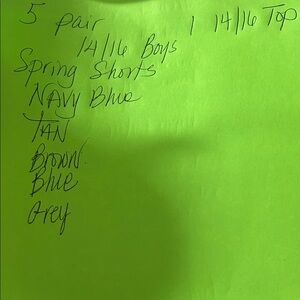 5 pair 1 14/16 Top
14/16 Boys
Spring Shorts
NAvy Blue
TAN
Brown.
Blue
Grey